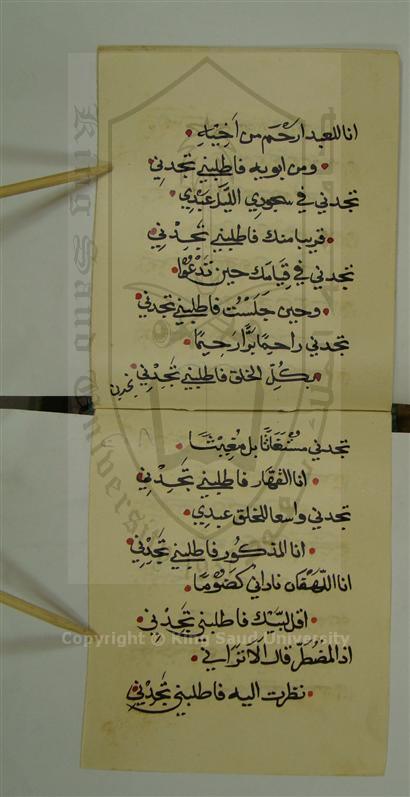 انا للعبد ارحم من اخيه
ومن ابويه فاطلبني تجدني
تجدني في سجودي الليل عبدي
قريبا منك فاطلبني تجدني
تجدني في قيامك حين تدعوا
وحين جلست فاطلبني تجدني
تجدني راحما برا رحيما
بكل الخلق فاطلبني تجدني
تجدني مستغاثا بل مغيثا
انا القهار فاطلبني تجدني
تجدني واسعا للخلق عبدي
انا المذكور فاطلبني تجدني
اذا اللهفان ناداني كضوما
اقل لبيك فاطلبني تجدني
اذا المضطر قال الا تراني
نظرت اليه فاطلبني تجدني
Copyright © King Saud University
King Saud University